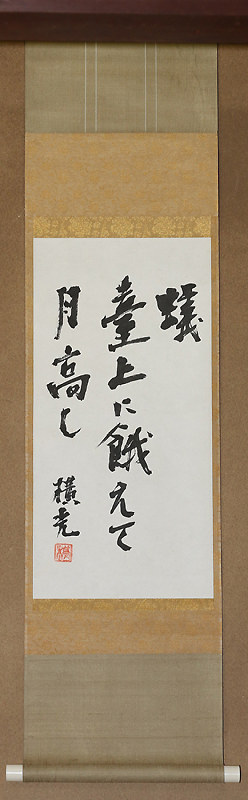 蟻
臺上に餓えて
月高し
横光